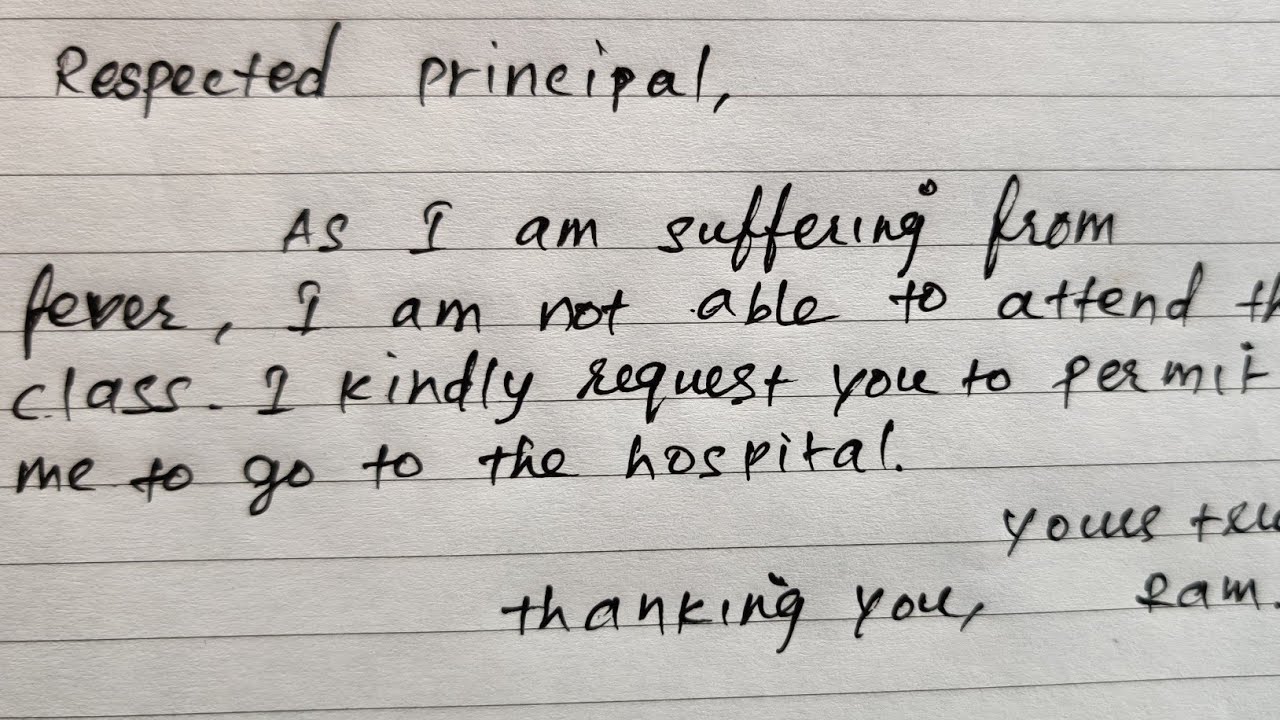 Respected principal,
As I am suffering from
fever, I am not able to attend th
class. I kindly request you to permit
me to go to the hospital.
yours tru
thanking you, Ram.